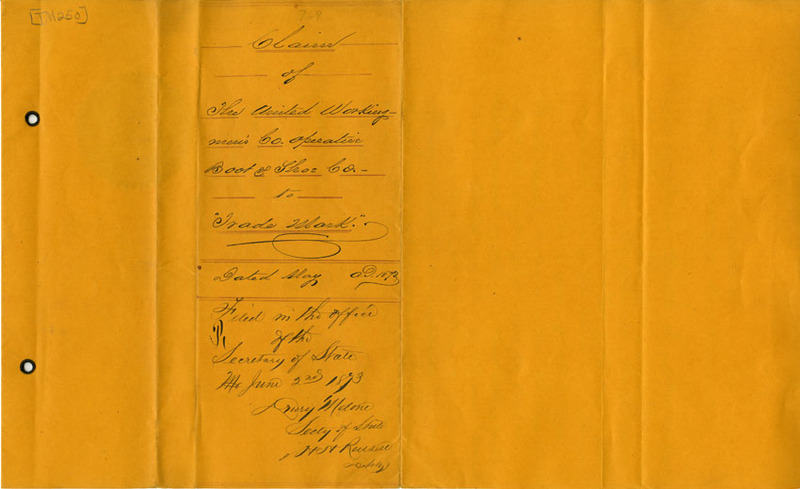 [TM250]
768
Claim
of
The United Working-
men's Co. operative
Boot & Shoe Co.-
to
"Trade Mark".
Dated May A.D. 1873
Filed in the office
of the
Secretary of State
June 2nd 1873
Drury Melone
Secy of State
Deputy